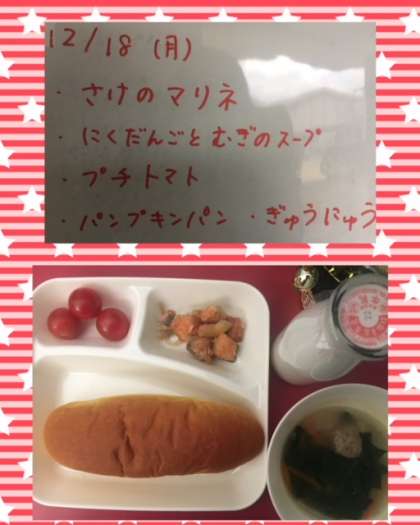 12/18 (月)
・さけのマリネ
・にくだんごとむぎのスープ
・プチトマト
・パンプキンパン ・ぎゅうにゅう